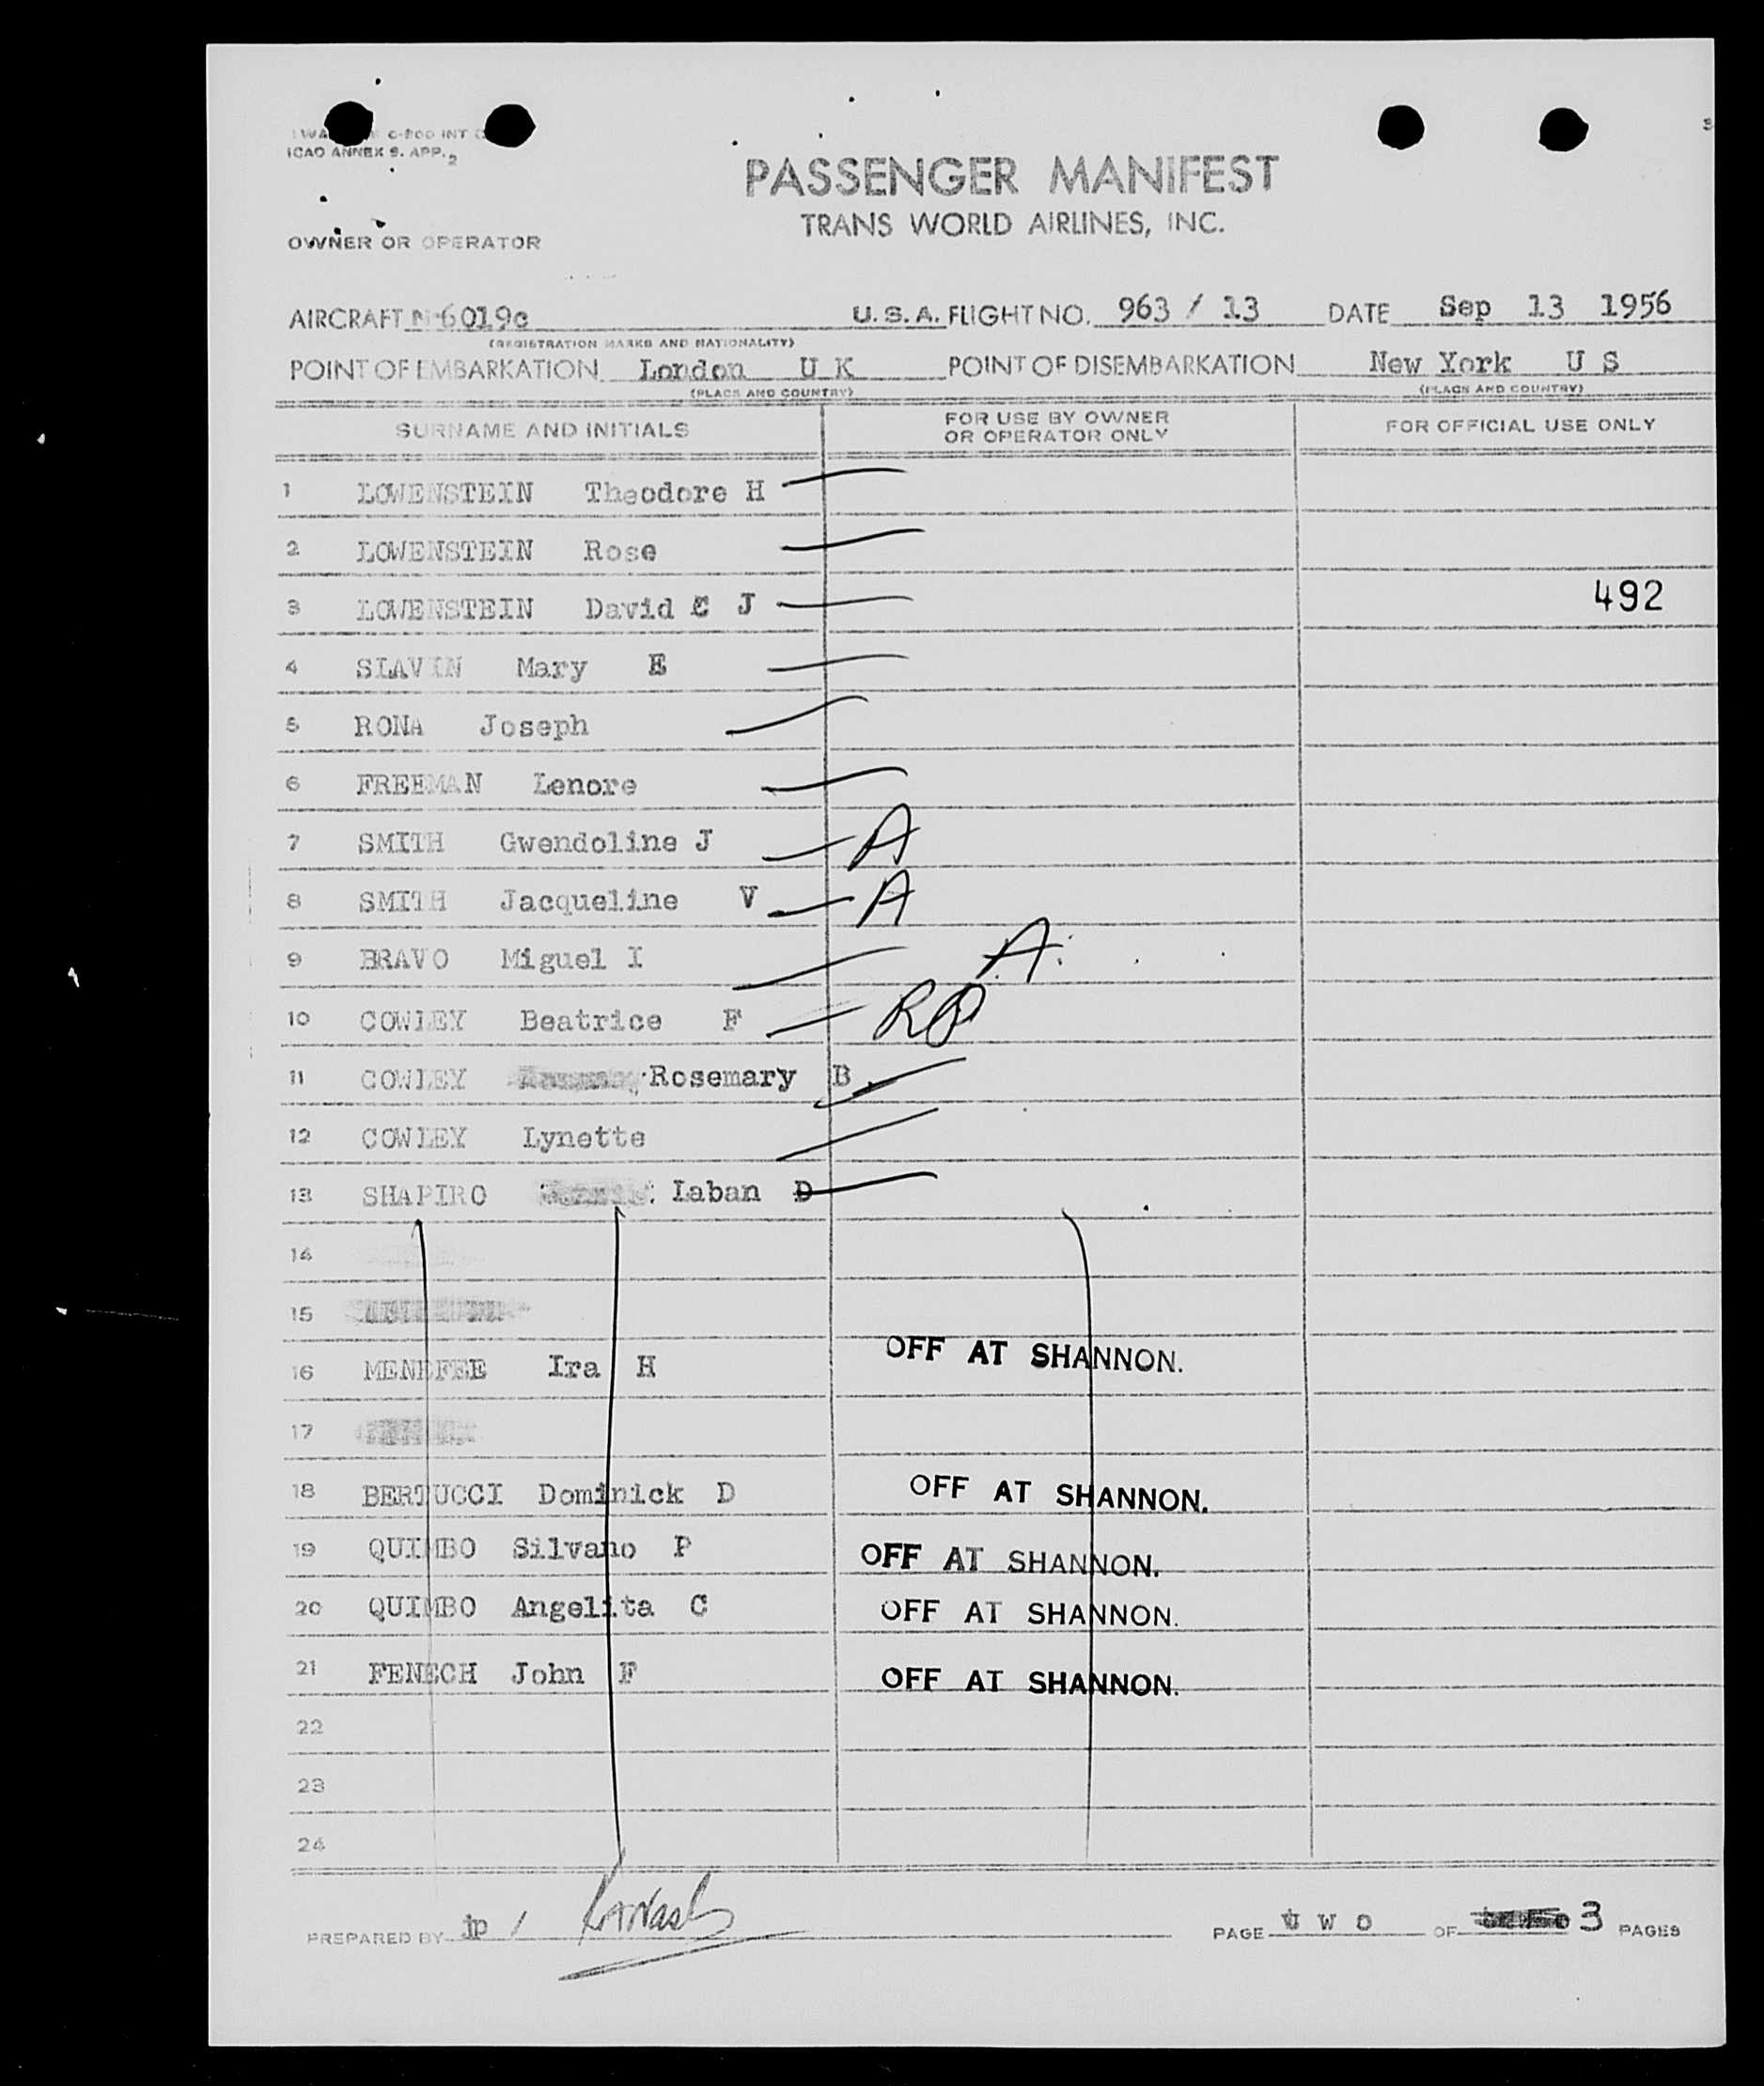 ICAO ANNEX 9. APP. 2
PASSENGER MANIFEST
TRANS WORLD AIRLINES, INC.
OWNER OR OPERATOR
AIRCRAFT N 6019c U.S.A. FLIGHT NO. 963 / 13 DATE Sep 13 1956
(REGISTRATION MARKS AND NATIONALITY)
POINT OF EMBARKATION London U K POINT OF DISEMBARKATION New York U S
(PLACE AND COUNTRY) (PLACE AND COUNTRY)
SURNAME AND INITIALS FOR USE BY OWNER OR OPERATOR ONLY FOR OFFICIAL USE ONLY
1 LOWENSTEIN Theodore H
2 LOWENSTEIN Rose
3 LOWENSTEIN David J 492
4 SLAVIN Mary E
5 RONA Joseph
6 FREEMAN Lenore
7 SMITH Gwendoline J A
8 SMITH Jacqueline V A
9 BRAVO Miguel I A
10 COWLEY Beatrice F
11 COWLEY Rosemary B
12 COWLEY Lynette
13 SHAPIRO Laban D
14
15
16 MENEFEE Ira H OFF AT SHANNON.
17
18 BERTUCCI Dominick D OFF AT SHANNON.
19 QUIMBO Silvano P OFF AT SHANNON.
20 QUIMBO Angelita C OFF AT SHANNON.
21 FENECH John F OFF AT SHANNON.
22
23
24
PREPARED BY jp / PAGE two OF 3 PAGES